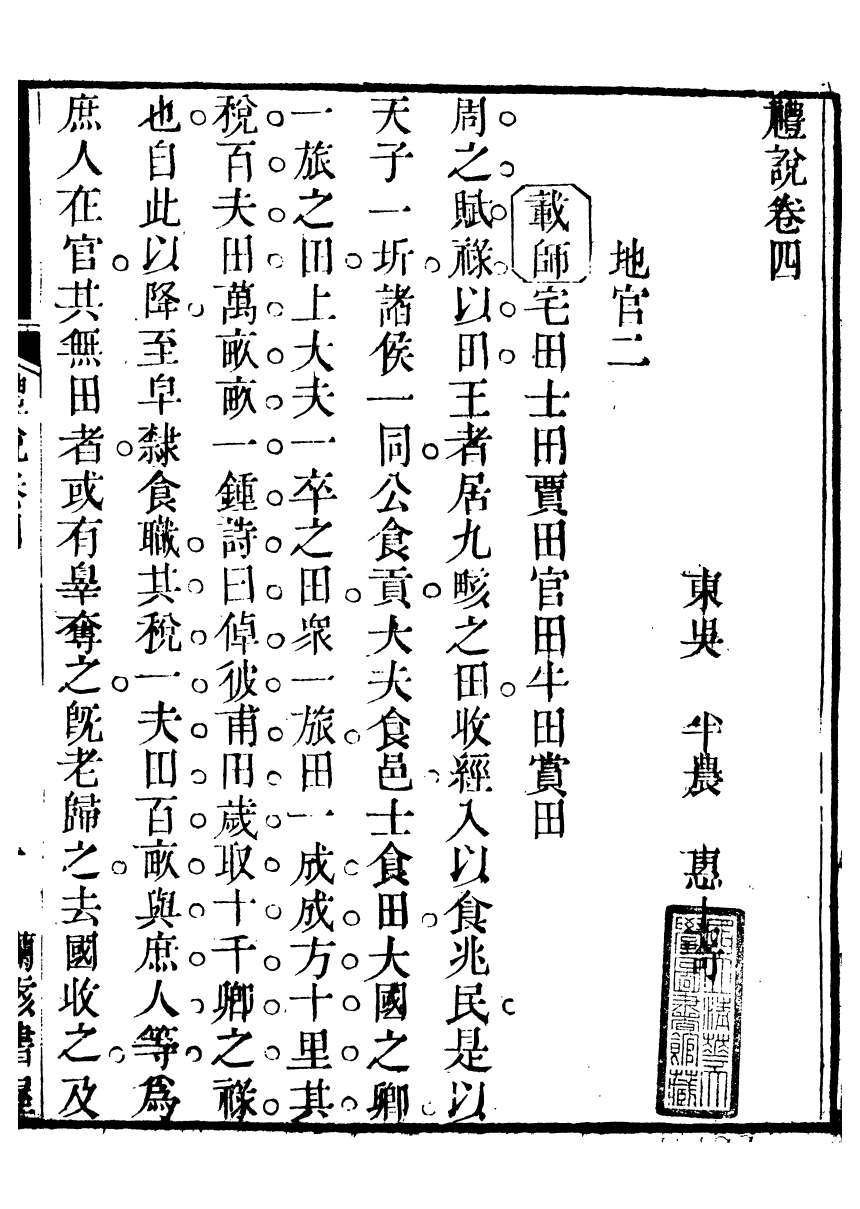 禮說卷四
東吳　半農　惠士奇
地官二
載師宅田士田賈田官田牛田賞田
周之賦祿以田王者居九畡之田收經入以食兆民是以
天子一圻諸侯一同公食貢大夫食邑士食田大國之卿
一旅之田上大夫一卒之田衆一旅田一成成方十里其
稅百夫田萬畝畝一鍾詩曰倬彼甫田歲取十千卿之祿
也自此以降至皁隸食職其稅一夫田百畝與庶人等爲
庶人在官其無田者或有辠奪之旣老歸之去國收之及
禮說卷四
一
蘭陔書屋
國立清華大學圖書館藏